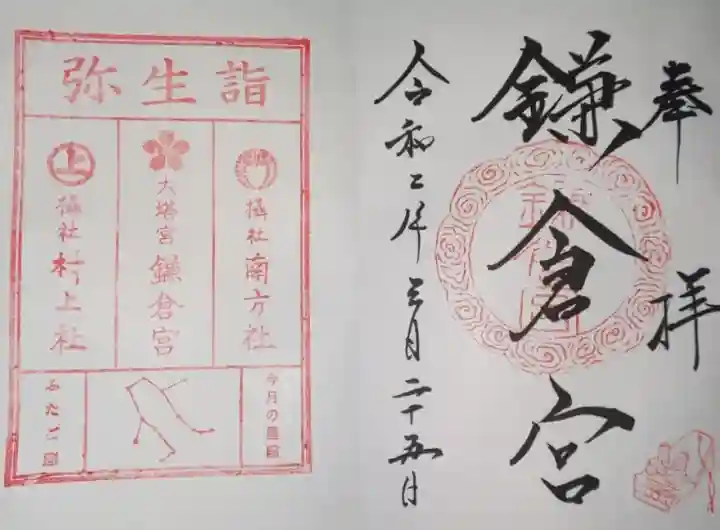 奉拝
鎌倉宮
鎌倉宮
令和二年三月二十五日
弥生詣
摂社 南方社
大塔宮 鎌倉宮
上
摂社 村上社
今月の星座
ふたご座